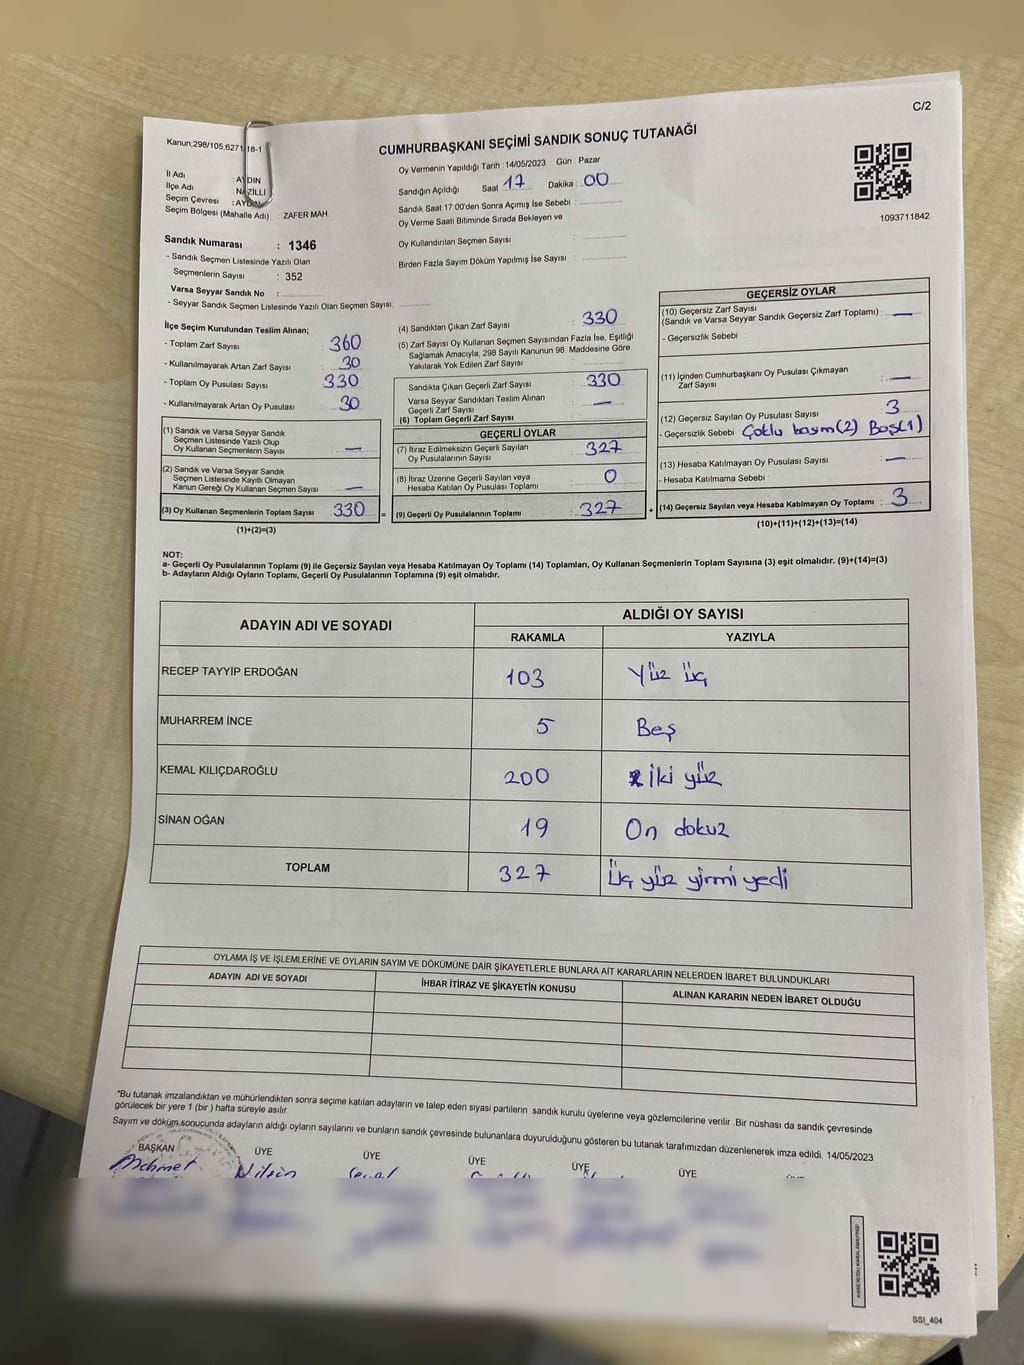 C/2
Kanun;298/105,6271/18-1
CUMHURBAŞKANI SEÇİMİ SANDIK SONUÇ TUTANAĞI
Oy Vermenin Yapıldığı Tarih : 14/05/2023 Gün : Pazar
İl Adı : AYDIN
İlçe Adı : NAZİLLİ
Seçim Çevresi : AYDIN
Seçim Bölgesi (Mahalle Adı) : ZAFER MAH
Sandığın Açıldığı Saat 17 Dakika : 00
Sandık Saat 17:00'den Sonra Açımış İse Sebebi :
Oy Verme Saati Bitiminde Sırada Bekleyen ve
Oy Kullandırılan Seçmen Sayısı :
Birden Fazla Sayım Döküm Yapılmış İse Sayısı :
1093711842
Sandık Numarası : 1346
- Sandık Seçmen Listesinde Yazılı Olan
Seçmenlerin Sayısı : 352
Varsa Seyyar Sandık No :
- Seyyar Sandık Seçmen Listesinde Yazılı Olan Seçmen Sayısı:
İlçe Seçim Kurulundan Teslim Alınan;
- Toplam Zarf Sayısı : 360
- Kullanılmayarak Artan Zarf Sayısı : 30
- Toplam Oy Pusulası Sayısı : 330
- Kullanılmayarak Artan Oy Pusulası : 30
(1) Sandık ve Varsa Seyyar Sandık
Seçmen Listesinde Yazılı Olup
Oy Kullanan Seçmenlerin Sayısı : —
(2) Sandık ve Varsa Seyyar Sandık
Seçmen Listesinde Kayıtlı Olmayan
Kanun Gereği Oy Kullanan Seçmen Sayısı : —
(3) Oy Kullanan Seçmenlerin Toplam Sayısı : 330 =
(1)+(2)=(3)
(4) Sandıktan Çıkan Zarf Sayısı : 330
(5) Zarf Sayısı Oy Kullanan Seçmen Sayısından Fazla İse, Eşitliği
Sağlamak Amacıyla, 298 Sayılı Kanunun 98. Maddesine Göre
Yakılarak Yok Edilen Zarf Sayısı :
Sandıkta Çıkan Geçerli Zarf Sayısı : 330
Varsa Seyyar Sandıktan Teslim Alınan
Geçerli Zarf Sayısı : —
(6) Toplam Geçerli Zarf Sayısı :
GEÇERLİ OYLAR
(7) İtiraz Edilmeksizin Geçerli Sayılan
Oy Pusulalarının Sayısı : 327
(8) İtiraz Üzerine Geçerli Sayılan veya
Hesaba Katılan Oy Pusulası Toplamı : 0
(9) Geçerli Oy Pusulalarının Toplamı : 327 +
GEÇERSİZ OYLAR
(10) Geçersiz Zarf Sayısı
(Sandık ve Varsa Seyyar Sandık Geçersiz Zarf Toplamı) : —
- Geçersizlik Sebebi :
(11) İçinden Cumhurbaşkanı Oy Pusulası Çıkmayan
Zarf Sayısı : —
(12) Geçersiz Sayılan Oy Pusulası Sayısı : 3
- Geçersizlik Sebebi Çoklu basım(2) Boş(1)
(13) Hesaba Katılmayan Oy Pusulası Sayısı : —
- Hesaba Katılmama Sebebi :
(14) Geçersiz Sayılan veya Hesaba Katılmayan Oy Toplamı : 3
(10)+(11)+(12)+(13)=(14)
NOT:
a- Geçerli Oy Pusulalarının Toplamı (9) ile Geçersiz Sayılan veya Hesaba Katılmayan Oy Toplamı (14) Toplamları, Oy Kullanan Seçmenlerin Toplam Sayısına (3) eşit olmalıdır. (9)+(14)=(3)
b- Adayların Aldığı Oyların Toplamı, Geçerli Oy Pusulalarının Toplamına (9) eşit olmalıdır.
ADAYIN ADI VE SOYADI ALDIĞI OY SAYISI
RAKAMLA YAZIYLA
RECEP TAYYİP ERDOĞAN 103 Yüz üç
MUHARREM İNCE 5 Beş
KEMAL KILIÇDAROĞLU 200 iki yüz
SİNAN OĞAN 19 On dokuz
TOPLAM 327 Üç yüz yirmi yedi
OYLAMA İŞ VE İŞLEMLERİNE VE OYLARIN SAYIM VE DÖKÜMÜNE DAİR ŞİKAYETLERLE BUNLARA AİT KARARLARIN NELERDEN İBARET BULUNDUKLARI
ADAYIN ADI VE SOYADI İHBAR İTİRAZ VE ŞİKAYETİN KONUSU ALINAN KARARIN NEDEN İBARET OLDUĞU
*Bu tutanak imzalandıktan ve mühürlendikten sonra seçime katılan adayların ve talep eden siyasi partilerin sandık kurulu üyelerine veya gözlemcilerine verilir .Bir nüshası da sandık çevresinde
görülecek bir yere 1 (bir ) hafta süreyle asılır.
Sayım ve döküm sonucunda adayların aldığı oyların sayılarını ve bunların sandık çevresinde bulunanlara duyurulduğunu gösteren bu tutanak tarafımızdan düzenlenerek imza edildi. 14/05/2023
BAŞKAN ÜYE ÜYE ÜYE ÜYE ÜYE
Mehmet
KARE KODU KARALAMAYINIZ!
SSI_404